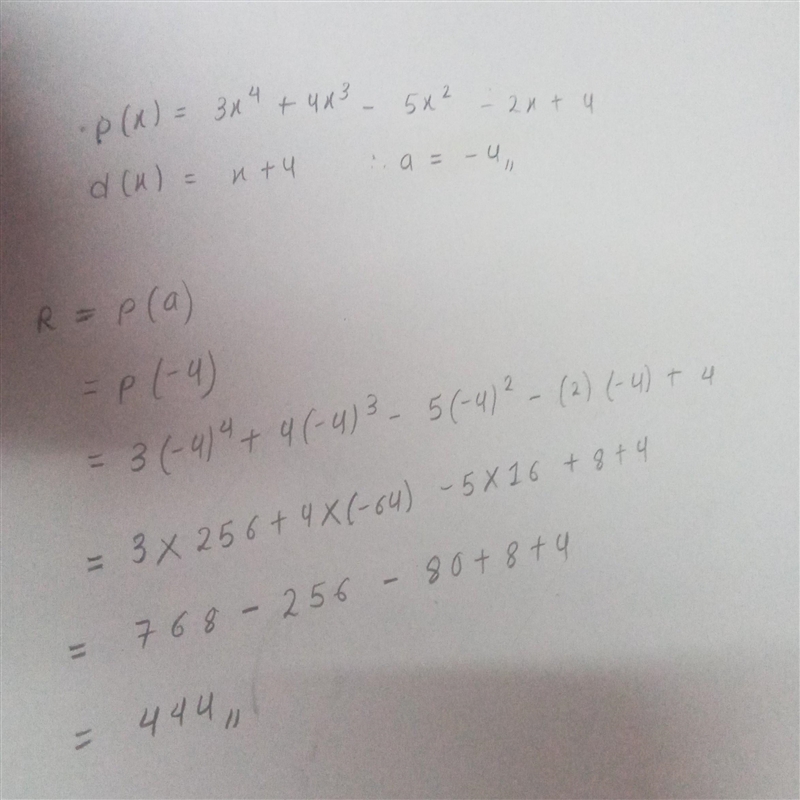 p(x) = 3x⁴ + 4x³ - 5x² - 2x + 4
d(x) = x + 4 ∴ a = -4,,
R = p(a)
= p(-4)
= 3(-4)⁴ + 4(-4)³ - 5(-4)² - (2)(-4) + 4
= 3 × 256 + 4×(-64) - 5×16 + 8 + 4
= 768 - 256 - 80 + 8 + 4
= 444,,